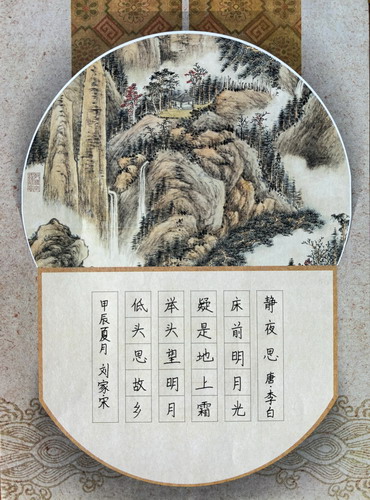 静夜思 唐·李白
床前明月光
疑是地上霜
举头望明月
低头思故乡
甲辰夏月 刘家宋